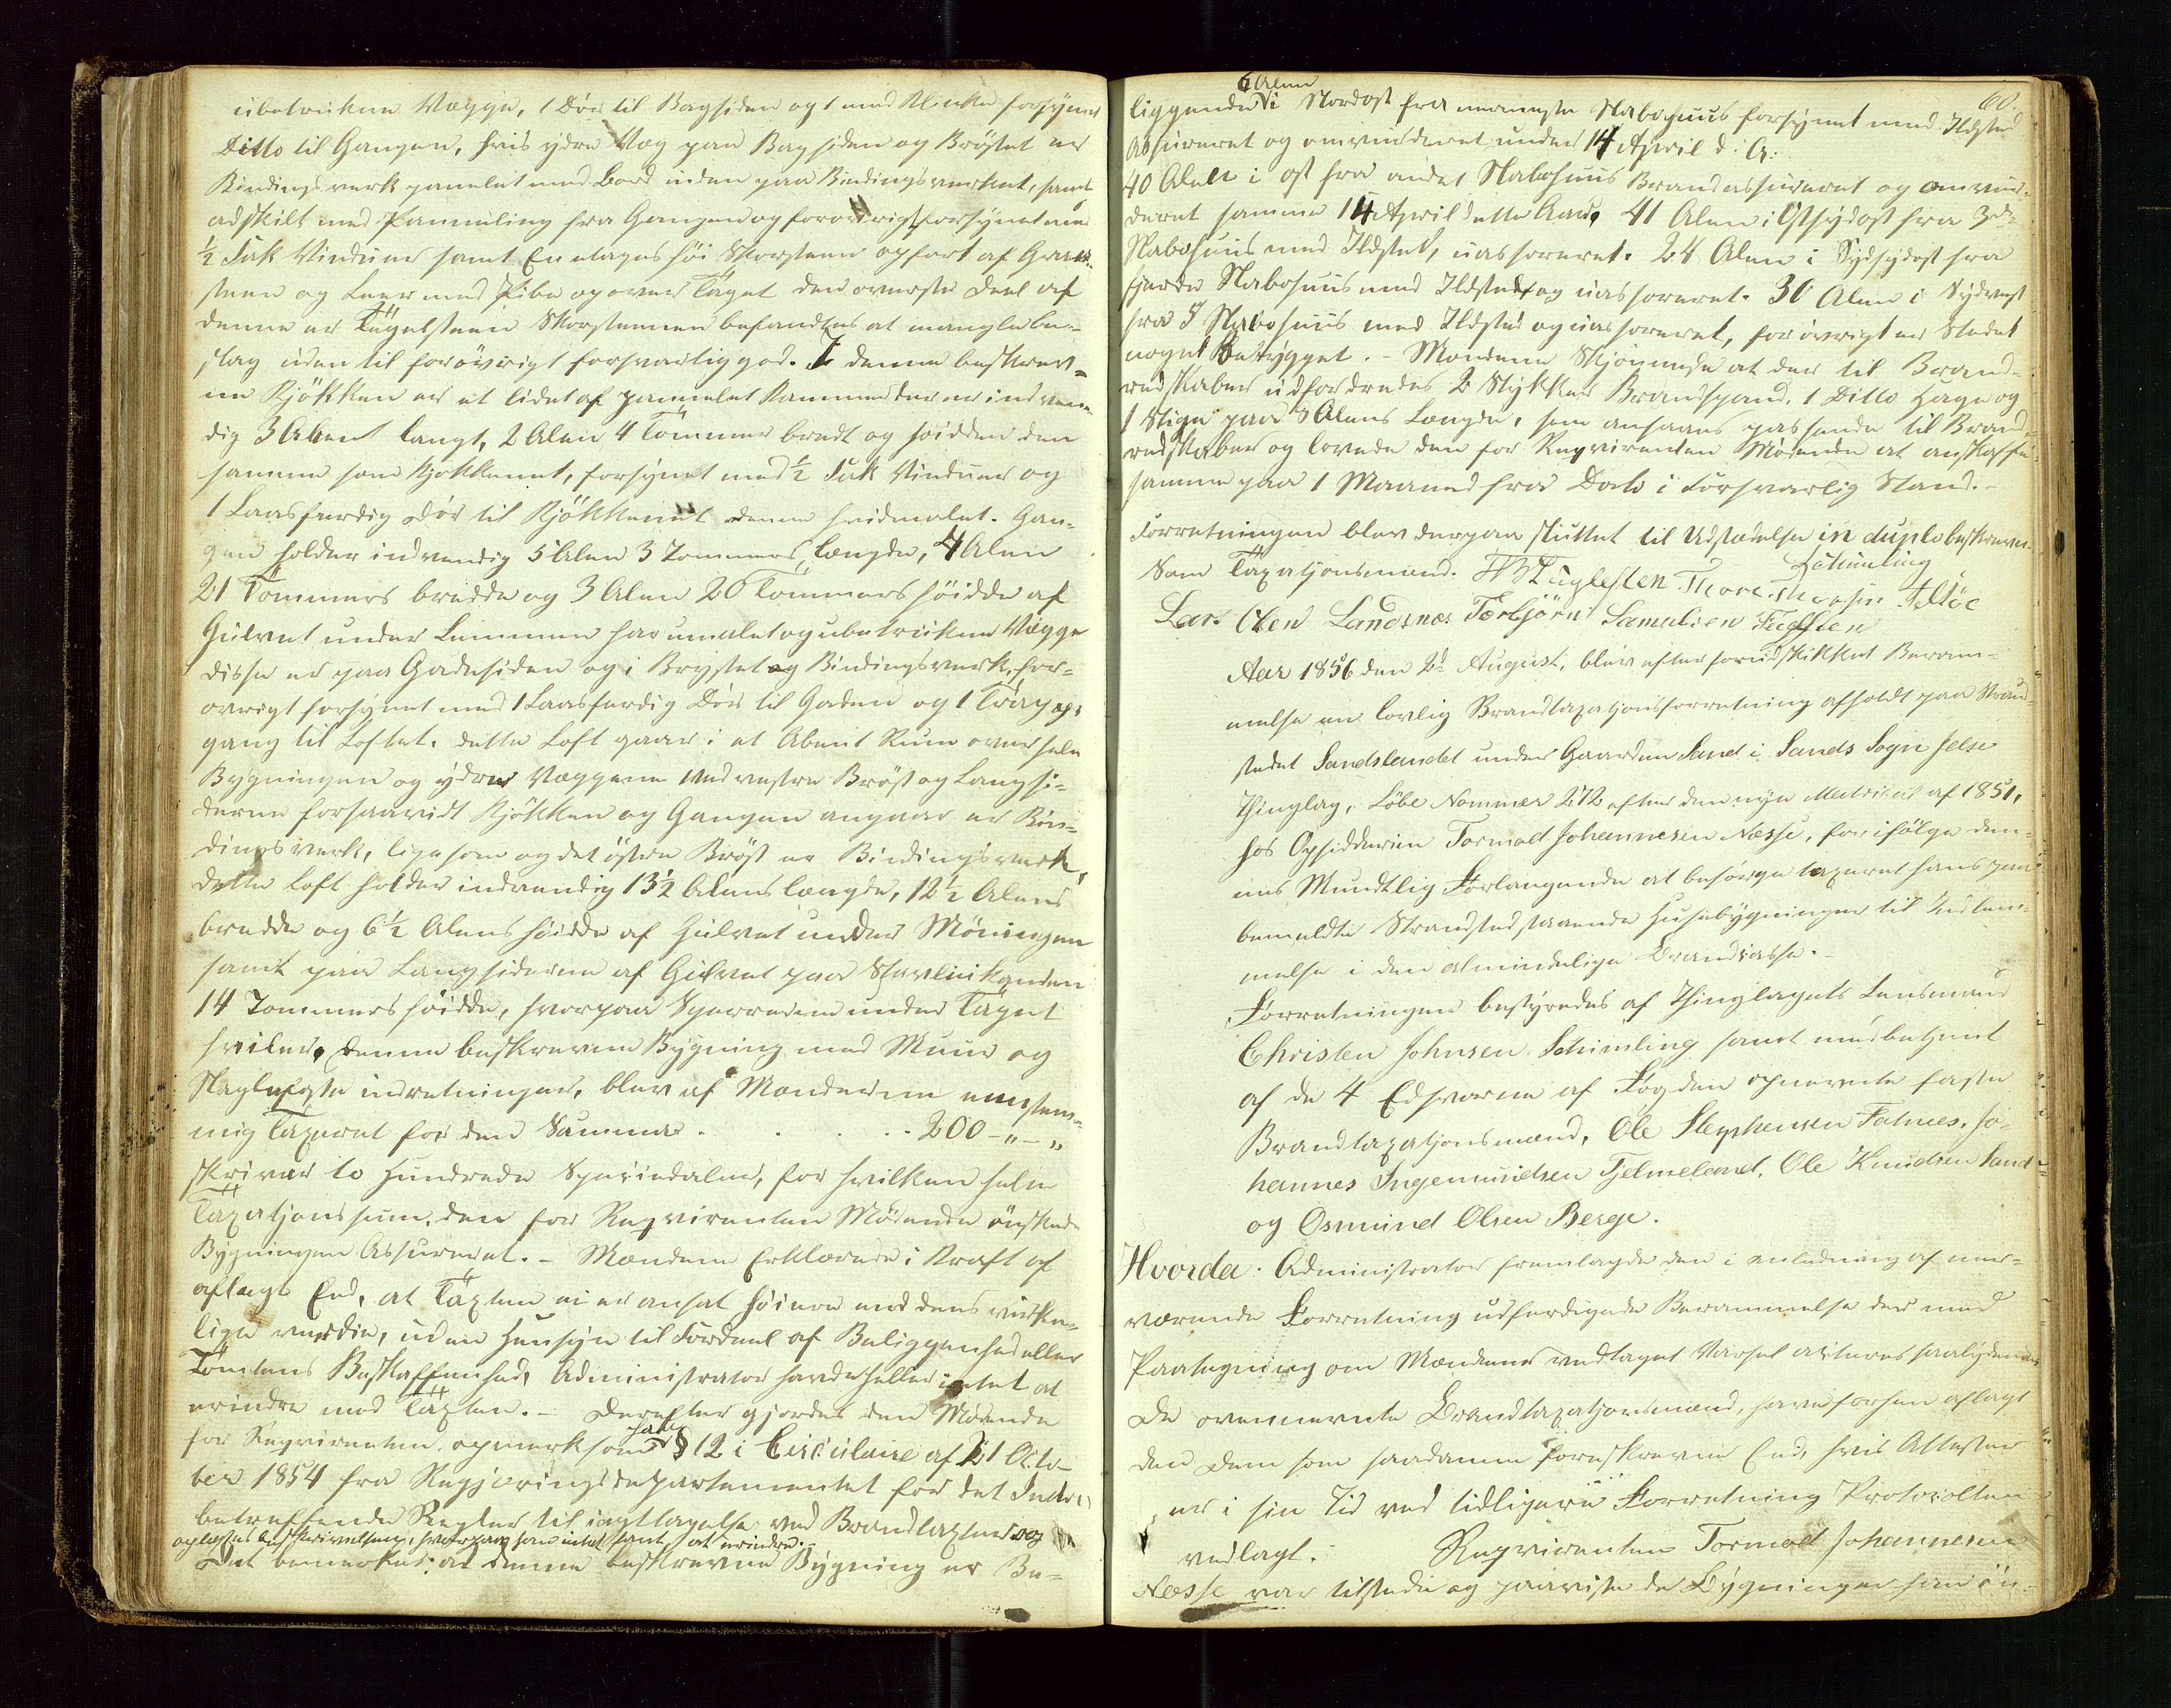 ubetrukne Vægge, 1 Dör til Bagsiden og 1 med Klinke forsynet
Ditto til Gangen, hvis ydre Væg paa Bagsiden og Bröstet er
Bindingsverk panelet med Bord uden paa Bindingsverket, samt
adskilt med Panneling fra Gangen og forovrigt forsynet med
½ Fak Vinduer samt En etages höi Skorsteen opfort af Graae-
steen og Leer med Pibe op over Taget den överste Deel af
denne er Tægelsteen Skorstenen befandtes at mangle be-
slag uden til forövrigt forsvarlig god. I denne beskrev-
ne Kjökken er et lidet af pannelet Kammer der er indven-
dig 3 Alen langt, 2 Alen 4 Tommer bredt og höidden den
samme som kjökkenet, forsynet med ½ Fak Vinduer og
1 Laasfærdig Dör til Kjökkenet denne hvidmalet. Gan-
gen holder indvendig 5 Alen 3 Tommers Længde, 4 Alen
21 Tommers bredde og 3 Alen 20 Tommers höidde af
Gulvet under Lemmen har umalet og ubetrukne Vægge
disse er paa Gadesiden og i Brystet og Bindingsverk, for-
ovrigt forsynet med 1 Laasferdig Dör til Gaden og 1 Trap op-
gang til Loftet. dette Loft gaar i et Abent Rum over hele
Bygningen og ydre Væggene Ved vestre Bröst og Langsi-
derne forsaavidt Kjökken og Gangen angaar er Bin-
dingsverk, ligesom og det östre Bröst er Bindingsverk,
dette Loft holder indvendig 13½ Alens længde, 12½ Alens
bredde og 6½ Alens höidde af Gulvet under Möningen
samt paa Langsiderne af Gulvet paa Stavlinkanden
14 Tommers höidde, hvorpaa Sperrerne under Taget
hviler, Denne beskrevne Bygning med Muur og
Naglefaste indretninger, blev af Mænderne eenstem-
mig Taxeret for den Summa . . . . . 200-"-"
skriver to Hundrede Speciedaler, for hvilken hele
Taxationssum, den for Reqvirenten Mödende önskede
Bygningen Assureret. - Mændene Erklærede i Kraft af
aflagt Eed, at Taxten ei er ansat höiere end dens virke-
lige værdie, uden Hensyn til Fordeel af Beliggenhed eller
Tomtens Beskaffenhed, Administrator havde heller intet at
erindre mod Taxten. - Derefter gjordes den Mödende
for Reqvirenten opmerksom paa § 12 i Circulaire af 21 Octo-
ber 1854 fra Regjeringsdepartementet for det Indre
betreffende Regler til iagttagelse ved Brandtaxter og
oplæstes beskrivelsen, hvorpaa han intet fant at erindre. -
Det bemerkes: at denne beskrevne Bygning er Be-
60.
liggende 6 Alen i Nordost fra nermeste Nabohuus forsynet med Ildsted
Assureret og omvurderet under 14 April d. A.
40 Alen i ost fra andet Nabohuus Brandassureret og omvur-
deret samme 14 April dette Aar, 41 Alen i Ostsydost fra 3de
Nabohuus med Ildsted, uassureret. 24 Alen i Sydsydost fra
fjerde Nabohuus med Ildsted og uassoreret. 30 Alen i Sydvest
fra 5 Nabohuus med Ildsted og uassoreret, for övrigt er Stedet
noget Bebygget. - Mændene Skjönnede at der til Brand-
redskaber udfordredes 2 Stykker Brandspand, 1 Ditto Hage og
1 Stige paa 7 Alens Længde, som ansaaes passende til Brand-
redskaber og lovede den for Reqvirenten Mödende at anskaffe
samme paa 1 Maaned fra Dato i Forsvarlig Stand. -
Forretningen blev derpaa sluttet til Udstædelse in duplo beskreven
Schimling
Som Taxationsmænd. Thore Thorsen
Lars Olsen Landsnæs Torbjörn Samulsen
Aar 1856 den 2d August, blev efter forudskikket Beram-
melse en lovlig Brandtaxationsforretning afholdt paa Strand-
stedet Sandslandet under Gaarden Sand i Sands Sogn Jelse
Thinglag, Löbe Nommer 272 efter den nye Matricul af 1851,
hos Opsidderen Tormod Johannesen Næsse, for ifölge den-
nes Mundtlig Forlangende at besörge taxeret hans paa
bemeldte Strandsted staaende Husebygninger til Indlem-
melse i den almindelige Brandcasse. -
Forretningen bestyredes af Thinglagets Lensmand
Christen Johnsen Schimling samt medbetjent
af de 4 Edsvorne af Fogden opnevnte faste
Brandtaxationsmænd, Ole Stephensen Fatnæs, Jo-
hannes Ingemundsen Tjelmeland, Ole Knudsen Sand
og Osmund Olsen Berge.
Hvorda. Administrator fremlagde den i anledning af nær-
værende Forretning udferdigede Berammelse der med
Paategning om Mændenes vedtaget Varsel acteres saalydende
De ovennevnte Brandtaxationsmænd, have forhen aflagt
den Dem som saadanne foreskrevne Eed, hvis Attester
er i sin Tid ved tidligere Forretning Protocollen
vedlagt. Reqvirenten Tormod Johannesen
Næsse var tilstede og paaviste de Bygninger han ön-